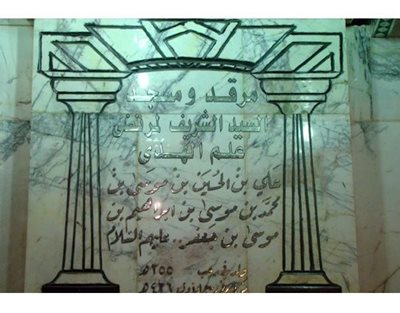 مرقد و مسجد
السيد الشريف المرتضى
علم الهدى
علي بن الحسين بن موسى بن
محمد بن موسى بن ابراهيم بن
موسى بن جعفر .. عليهم السلام
٣٥٥ هـ
٤٣٦ هـ